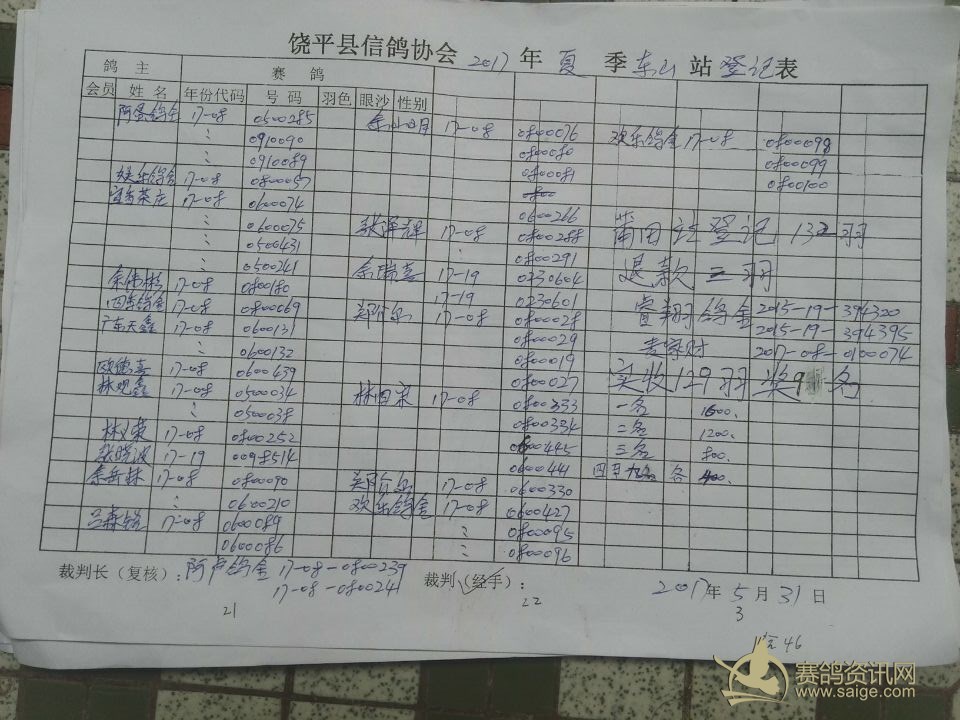 饶平县信鸽协会 2017 年 夏 季 东山 站 登记表
鸽 主 赛 鸽
会员 姓 名 年份代码 号 码 羽色 眼沙 性别
17-08 0500285 17-08 0800076 欢乐鸽舍 17-08 0800098
0910090 0800080 0800099
0910089 0800081 0800100
娱乐鸽舍 17-08 0800057
茶庄 17-08 0600074 0600266
0600075 张泽 17-08 0800288 莆田站登记 132羽
0500431 0800291
0500241 余瑞喜 17-19 0230604 退款 三羽
余伟彬 17-08 0800180 17-19 0230601 鸽舍 2015-19-394320
四季鸽舍 17-08 0800069 17-08 0800028 2015-19-394395
广东天鑫 17-08 0600131 0800029 麦家财 2017-08-0100074
0600132 0800019
欧德喜 17-08 0600639 0800027 实收129羽 奖9名
林观鑫 17-08 0500034 林回 17-08 0800333 一名 1600.
0500038 0800334 二名 1200.
林义荣 17-08 0800252 0600445 三名 800.
张晓波 17-19 0098514 0600441 四至九名 各 400.
余岳林 17-08 0800090 17-08 0600330
0600210 欢乐鸽舍 17-08 0600427
吕森 17-08 0600089 0800095
0600086 0800096
裁判长（复核）：阿卢鸽舍 17-08-0800239 裁判（经手）： 2017年 5 月 31 日
17-08-0800241
21 22 3
46
赛鸽资讯网
www.saige.com